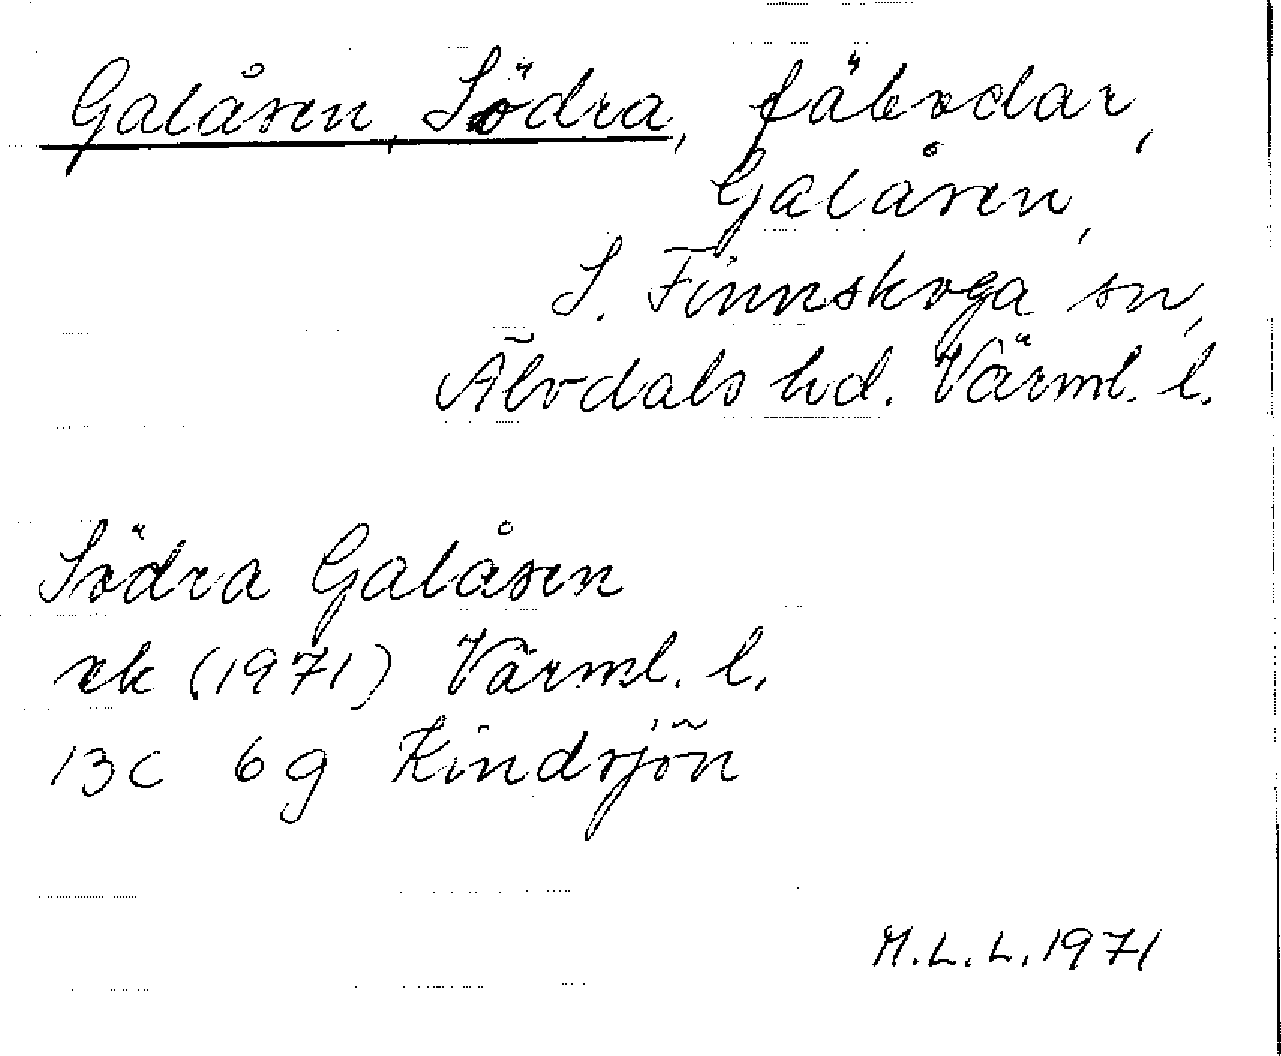 Galåsen, Södra, fäbodar,
Galåsen,
S. Finnskoga sn,
Älvdals hd. Värml. l.
Södra Galåsen
ek (1971) Värml. l.
13C 6g Kindsjön
M.L.L. 1971